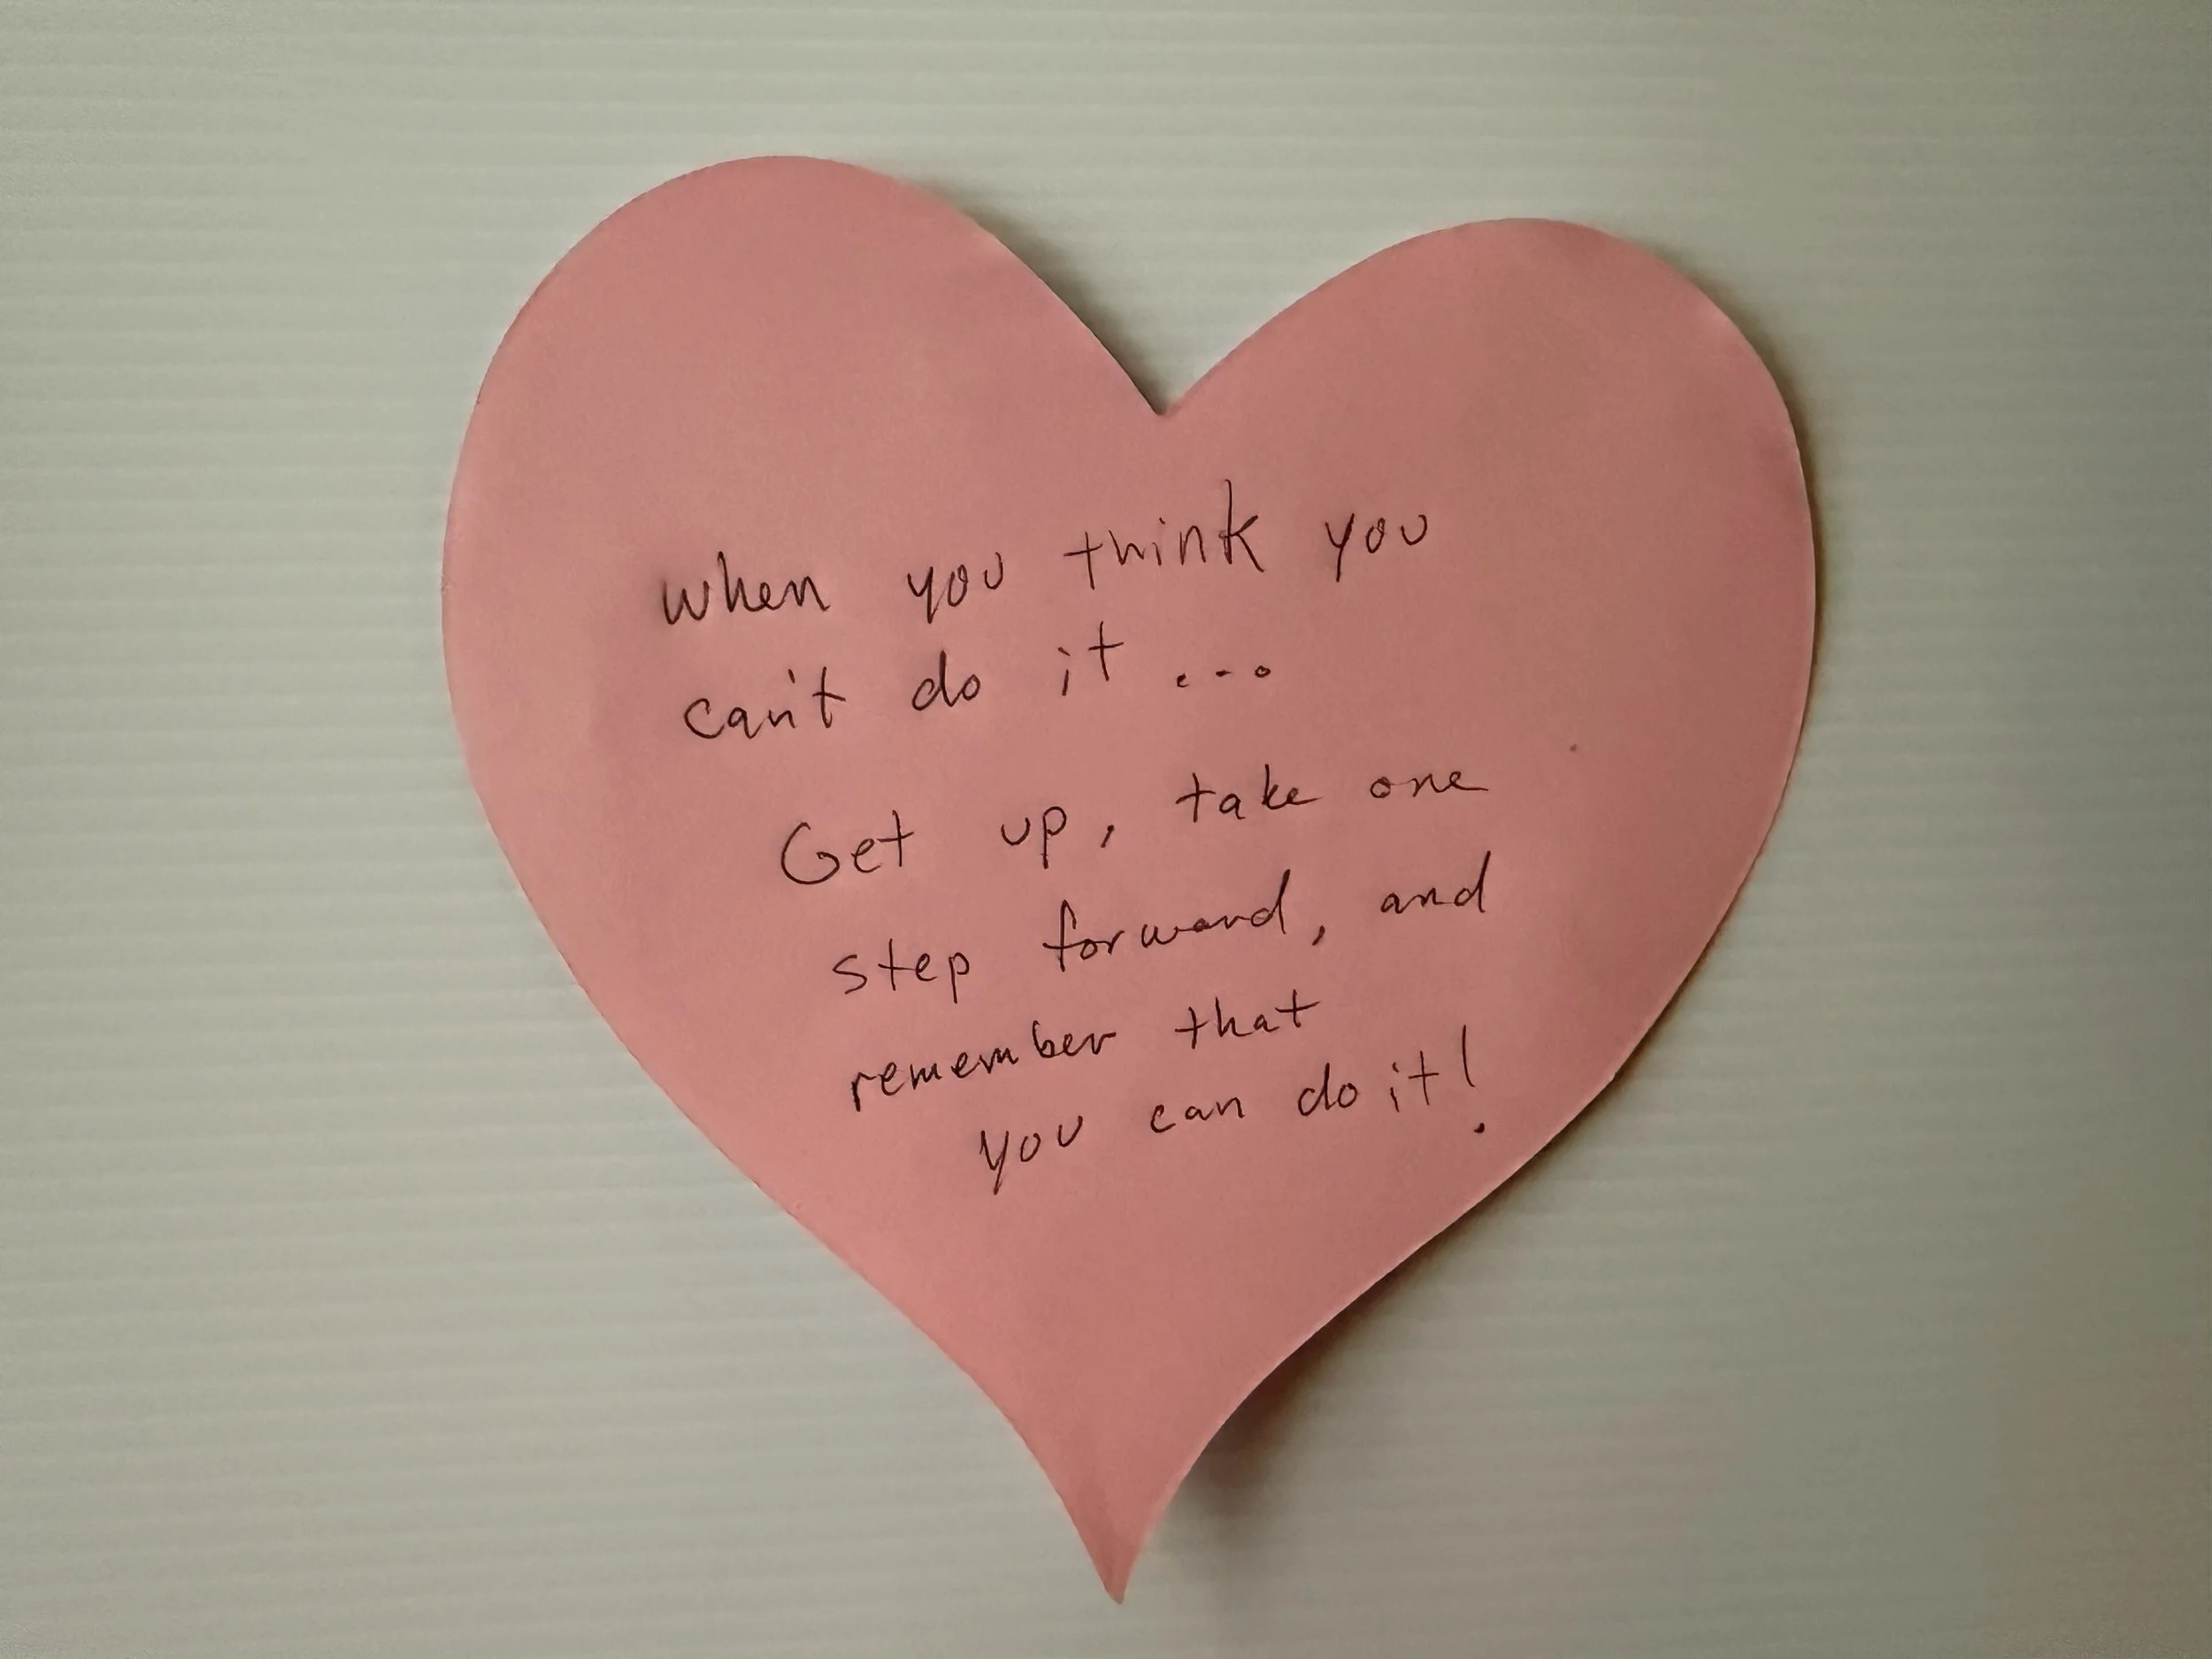 when you think you
can't do it ...
Get up, take one
step forward, and
remember that
you can do it!